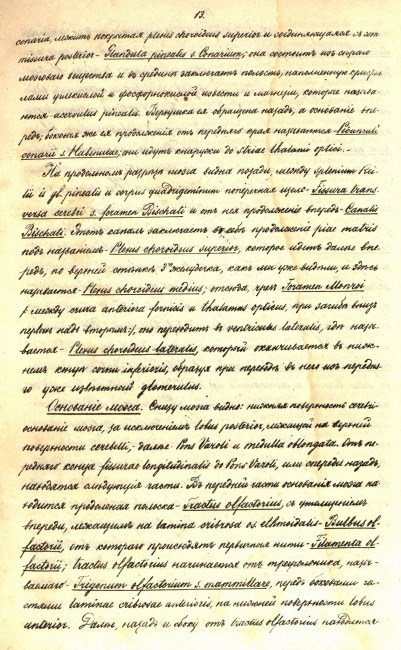 13.
conaria, лежитъ покрытая plexus choroideus superior и соединяющаяся съ com-
missura posterior - Glandula pinealis s. Conarium; она состоитъ изъ сѣраго
мозговаго вещества и въ срединѣ заключаетъ полость, наполненную кристал-
лами углекислой и фосфорнокислой извести и магнезіи, которые назыв-
аются - acervulus pinealis. Верхушка ея обращена назадъ, а основаніе впе-
редъ; боковыя же ея продолженія отъ передняго края называются - Pedunculi
conarii s. Habenulae; они идутъ снаружи до striae thalami optici. -
На продольномъ разрѣзѣ мозга видна позади, между splenium
и gl. pinealis и corpus quadrigeminum поперечная щель - Fissura trans-
versa cerebri s. foramen Bischati и отъ нея продолженіе впередъ - Canalis
Bischati. Этотъ каналъ заключаетъ въ себѣ продолженіе piae matris
подъ названіемъ - Plexus choroideus superior, которое идетъ далѣе впе-
редъ, по верхней стѣнкѣ 3го желудочка, какъ мы уже видѣли, и здѣсь
называется - Plexus choroideus medius; отсюда, чрезъ Foramen Monroi
/: между crura anteriora fornicis и thalamus opticus, при загибѣ внизъ
первыхъ надъ вторымъ :/, оно переходитъ въ ventriculus lateralis, гдѣ назы-
вается - Plexus choroideus lateralis, который оканчивается въ ниж-
немъ концѣ cornu inferioris, образуя при переходѣ въ него изъ передня-
го уже извѣстный glomerulus.
Основаніе мозга. Снизу мозга видно: нижняя поверхность cerebri -
основаніе мозга, за исключеніемъ lobus posterior, лежащій на верхней
поверхности cerebelli; далѣе Pons Varoli и medulla oblongata. Отъ пе-
редняго конца fissurae longitudinalis до Pons Varoli, или спереди назадъ,
находятся слѣдующія части. Въ передней части основанія мозга на-
ходится продольная полоска - Tractus olfactorius, съ утолщеніемъ
впереди, лежащимъ на lamina cribrosa os ethmoidalis - Bulbus ol-
factorii, отъ котораго происходятъ первичныя нити - Filamenta ol-
factorii; tractus olfactorius начинается отъ треугольника, назы-
ваемаго - Trigonum olfactorium s. mammillare, передъ боковыми ча-
стями laminae cribrosae anterioris, на нижней поверхности lobus
anterior. Далѣе, назадъ и сбоку отъ tractus olfactorius находится